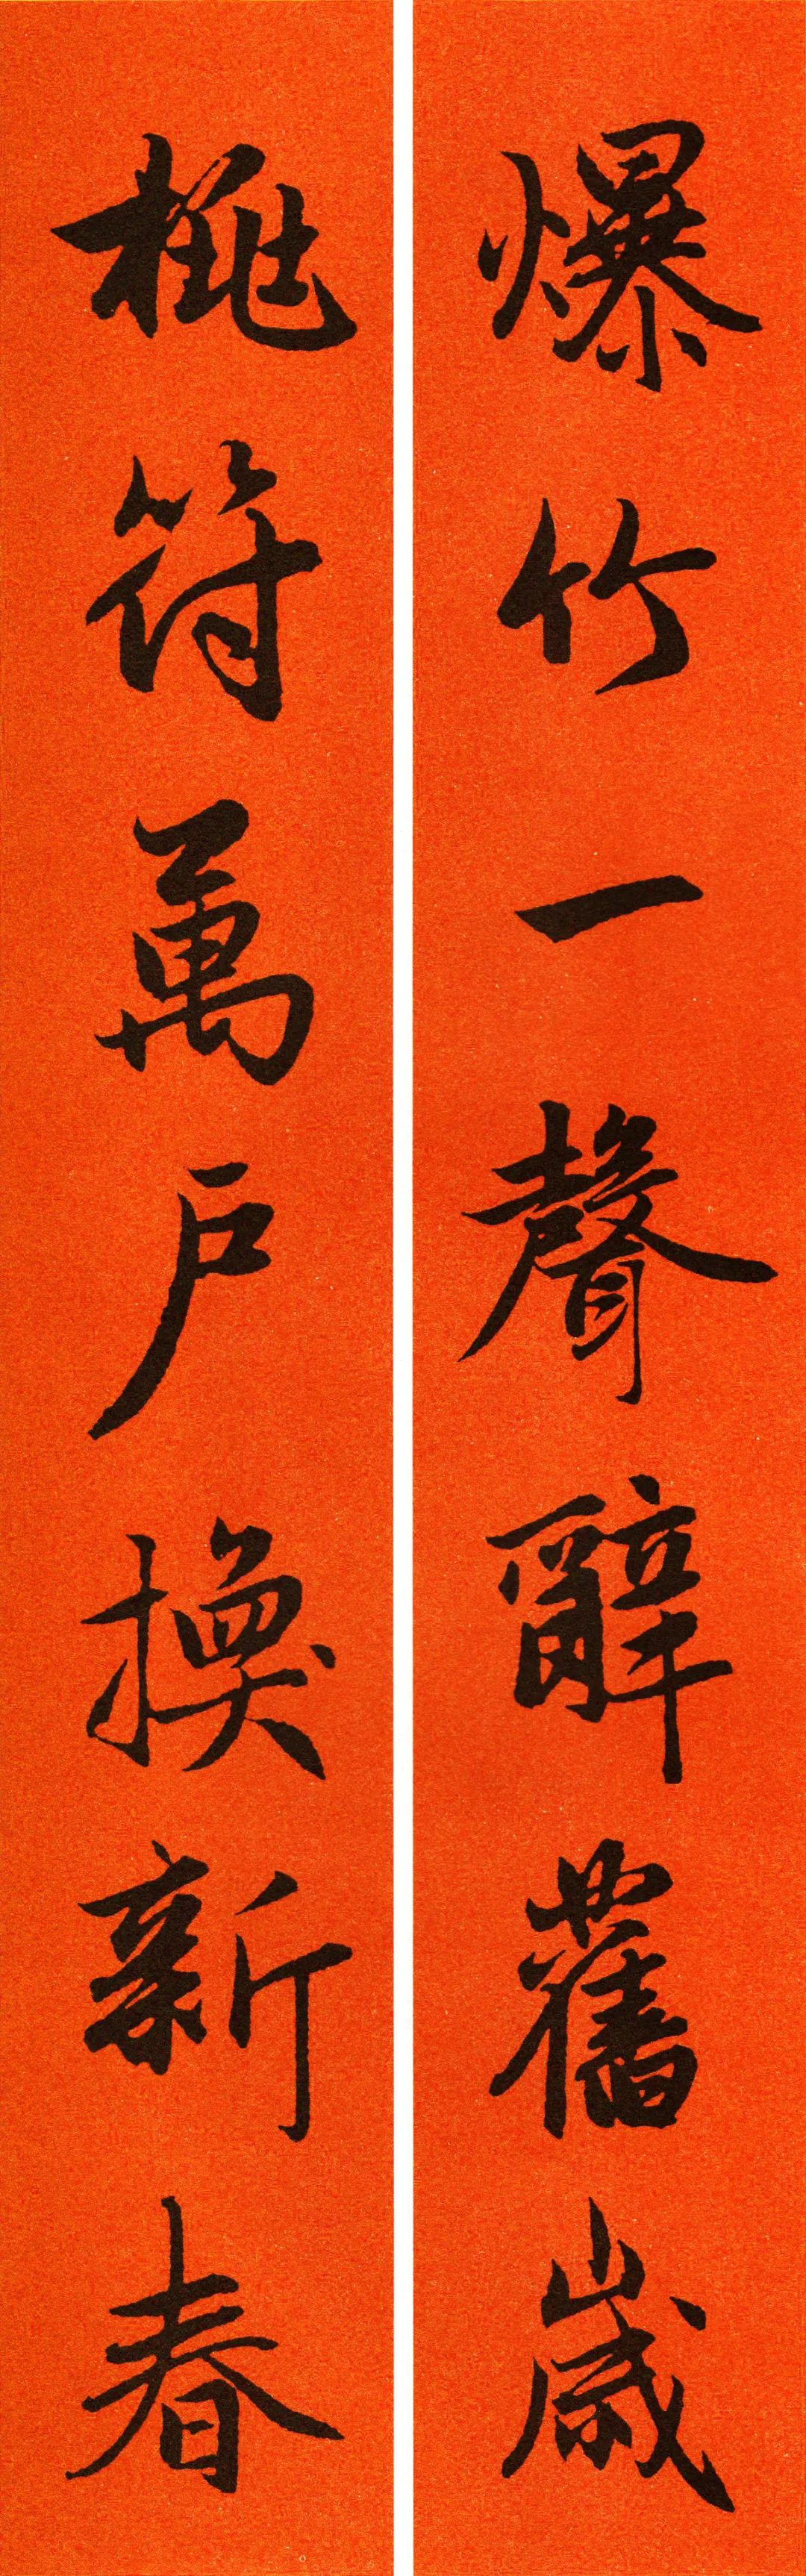 爆竹一聲辭舊歲
桃符萬戶換新春